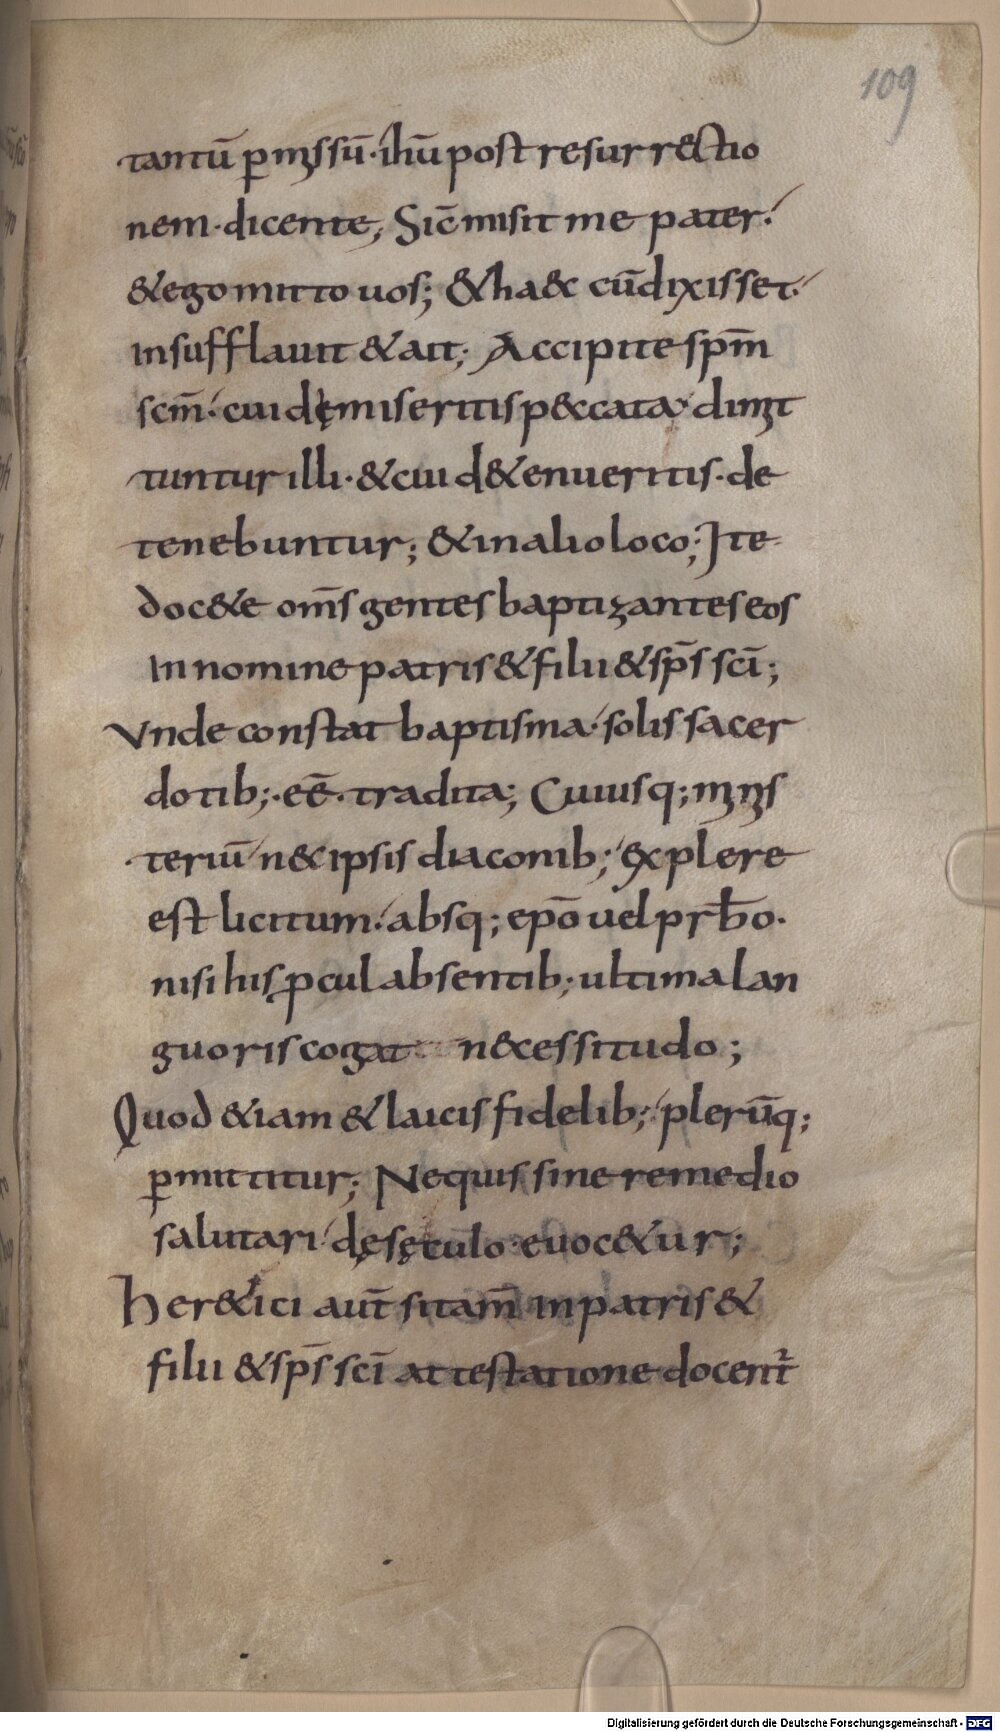 109
tantū ꝑmissū· ihū post resurrectio
nem· dicente; Sic̄ misit me pater·
& ego mitto uos; & ha& cū dixisset·
insufflauit & ait; Accipite sp̄m
sc̄m· cui dęmiseritis p&cata· dimit
tuntur illi· & cui d&enueritis· de
tenebuntur; & in alio loco; Ite
doc&e om̄s gentes baptizantes eos
In nomine patris & filii & sp̄s sc̄i;
Vnde constat baptisma· solis sacer
dotib;· eē· tradita; Cuiusq; minis
teriū n&c ipsis diaconib; explere
est licitum· absq; ep̄o uel prb̄o·
nisi his ꝓcul absentib; ultima lan
guoris cogat n&cessitudo;
Quod &iam & laicis fidelib; plerūq;
ꝑmittitur; Nequis sine remedio
salutari dę sęculo· euoc&ur;
Her&ici aut̄ si tam̄ in patris &
filii & sp̄s sc̄i attestatione docent᷑
Digitalisierung gefördert durch die Deutsche Forschungsgemeinschaft - DFG